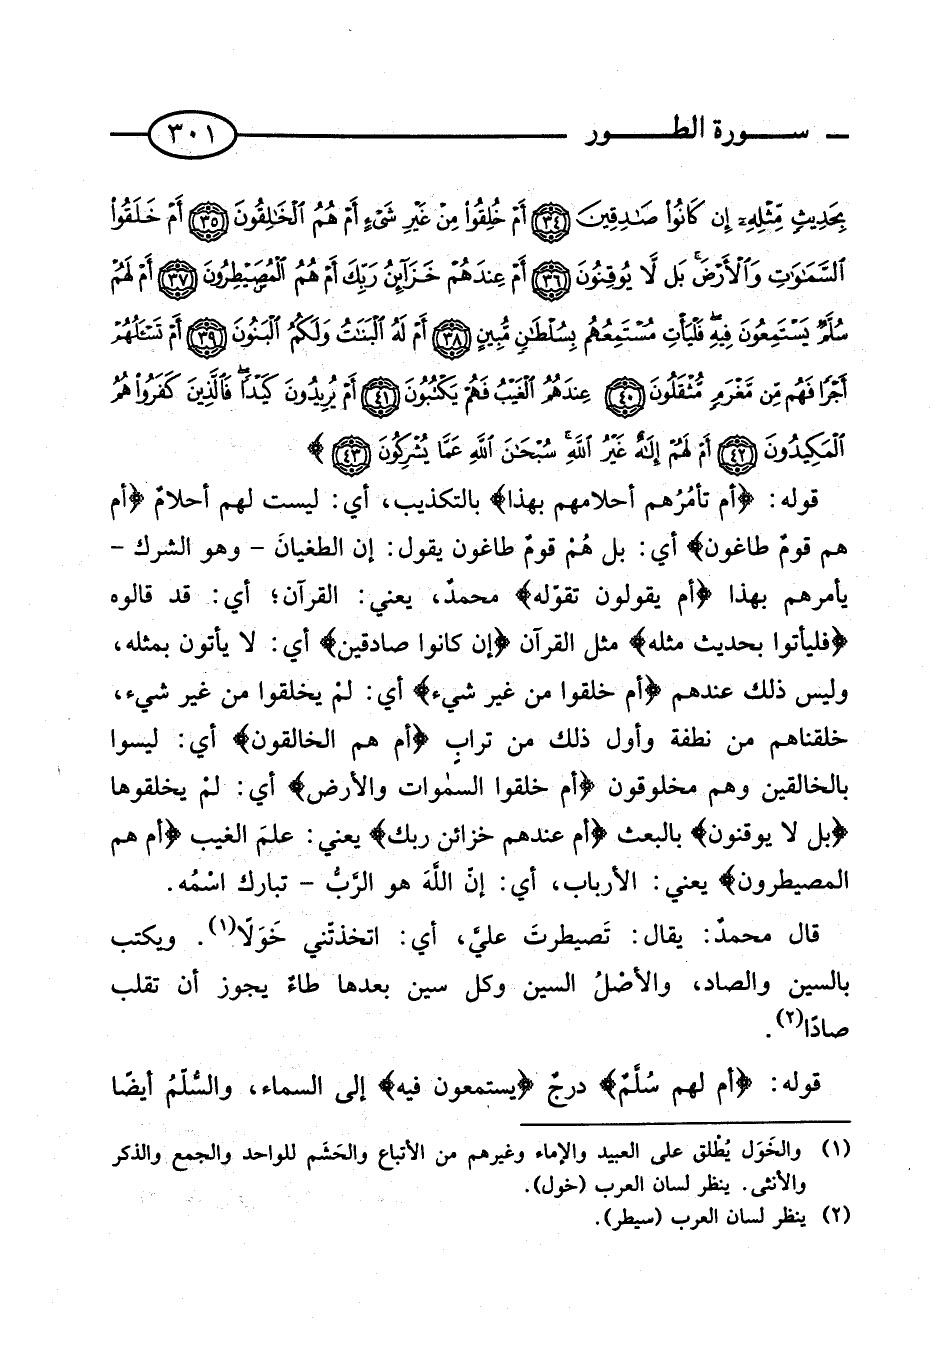 سورة الطور ٣٠١
بِحَدِيثٍ مِّثْلِهِۦٓ إِن كَانُوا۟ صَـٰدِقِينَ ٣٤ أَمْ خُلِقُوا۟ مِنْ غَيْرِ شَىْءٍ أَمْ هُمُ ٱلْخَـٰلِقُونَ ٣٥ أَمْ خَلَقُوا۟
ٱلسَّمَـٰوَٰتِ وَٱلْأَرْضَ ۚ بَل لَّا يُوقِنُونَ ٣٦ أَمْ عِندَهُمْ خَزَآئِنُ رَبِّكَ أَمْ هُمُ ٱلْمُصَۣيْطِرُونَ ٣٧ أَمْ لَهُمْ
سُلَّمٌ يَسْتَمِعُونَ فِيهِ ۖ فَلْيَأْتِ مُسْتَمِعُهُم بِسُلْطَـٰنٍ مُّبِينٍ ٣٨ أَمْ لَهُ ٱلْبَنَـٰتُ وَلَكُمُ ٱلْبَنُونَ ٣٩ أَمْ تَسْـَٔلُهُمْ
أَجْرًا فَهُم مِّن مَّغْرَمٍ مُّثْقَلُونَ ٤٠ عِندَهُمُ ٱلْغَيْبُ فَهُمْ يَكْتُبُونَ ٤١ أَمْ يُرِيدُونَ كَيْدًا ۖ فَٱلَّذِينَ كَفَرُوا۟ هُمُ
ٱلْمَكِيدُونَ ٤٢ أَمْ لَهُمْ إِلَـٰهٌ غَيْرُ ٱللَّهِ ۚ سُبْحَـٰنَ ٱللَّهِ عَمَّا يُشْرِكُونَ ٤٣ ﴾
قوله: ﴿أم تأمُرُهم أحلامهم بهذا﴾ بالتكذيب، أي: ليست لهم أحلامٌ ﴿أم
هم قومٌ طاغون﴾ أي: بل هُمْ قومٌ طاغون يقول: إن الطغيانَ – وهو الشرك –
يأمرهم بهذا ﴿أم يقولون تقوّله﴾ محمدٌ، يعني: القرآن؛ أي: قد قالوه
﴿فليأتوا بحديث مثله﴾ مثل القرآن ﴿إن كانوا صادقين﴾ أي: لا يأتون بمثله،
وليس ذلك عندهم ﴿أم خلقوا من غير شيء﴾ أي: لمْ يخلقوا من غير شيء،
خلقناهم من نطفة وأول ذلك من ترابٍ ﴿أم هم الخالقون﴾ أي: ليسوا
بالخالقين وهم مخلوقون ﴿أم خلقوا السمٰوات والأرض﴾ أي: لمْ يخلقوها
﴿بل لا يوقنون﴾ بالبعث ﴿أم عندهم خزائن ربك﴾ يعني: علمَ الغيب ﴿أم هم
المصيطرون﴾ يعني: الأرباب، أي: إنَّ اللَّهَ هو الرَّبُّ – تبارك اسْمُه.
قال محمدٌ: يقال: تَصيطرتَ عليَّ، أي: اتخذتّني خَوَلًا(١). ويكتب
بالسين والصاد، والأصْلُ السين وكل سين بعدها طاءٌ يجوز أن تقلب
صادًا(٢).
قوله: ﴿أم لهم سُلَّمٌ﴾ درجٌ ﴿يستمعون فيه﴾ إلى السماء، والسُّلَّمُ أيضًا
(١) والخَوَل يُطْلق على العبيد والإماء وغيرهم من الأتباع والحَشَم للواحد والجمع والذكر
والأنثى. ينظر لسان العرب (خول).
(٢) ينظر لسان العرب (سيطر).